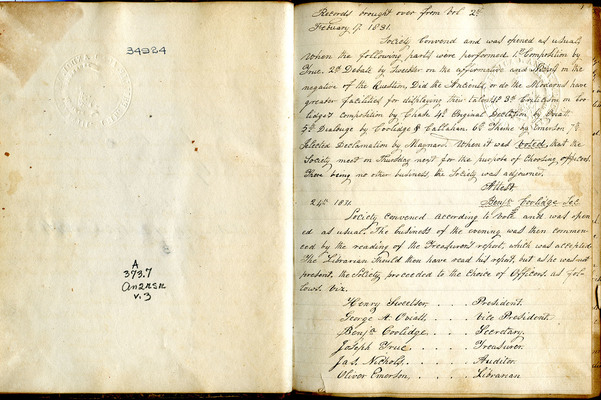 34984
A
373.7
An2KSK
v. 3
Records brought over from Vol. 2d
Febuary 17. 1831.
Society convend and was opened as usual,
When the following parts were performed 1st Composition by
True. 2d Debate by Sweetser on the affirmative and on the
negative of the Question, Did the Ancients, or do the Moderns have
greater facilities for displaying their talents? 3d Criticism on Coo-
lidge's composition by Chase 4th Original Declation by Oviatt.
5th Dialouge by Coolidge & Callahan. 6th Theme by Emerson. 7th
Selected Declamation by Maynard. When it was voted, that the
Society meet on Thursday next for the purpose of Choosing officers.
There being no other business, the Society was adjourned.
Attest
Benjn Coolidge Sec.
24th 1831.
Society convened according to vote and was open
ed as usual. The business of the evening was then commen-
ced by the reading of the Treasurer's report, which was accepted.
The Librarian should then have read his report, but as he was not
present, the Society proceeded to the choice of Officers. as fol-
lows. viz.
Henry Sweetser, . . . . President.
George A. Oviatt, . . . . Vice President.
Benjn Coolidge, . . . . Secretary.
Joseph True, . . . . Treasurer.
Jas. Nichols, . . . . Auditor.
Oliver Emerson, . . . . Librarian